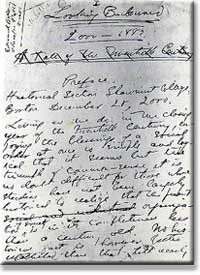 I
Looking Backward
2000–1887
A Tale of the Twentieth Century
Preface.
Historical Section Shawmut College,
Boston December 28, 2000.
Living as we do in the closing
year of the Twentieth Century,
the blessings of a social
order at once so simple and log-
ical that it seems but the
triumph of common sense, it is
no doubt difficult for those whose
studies have not been largely
to realize that the present
organiza-
tion is in its completeness less
than a century old. No his-
torical fact is however better
established than that till nearly